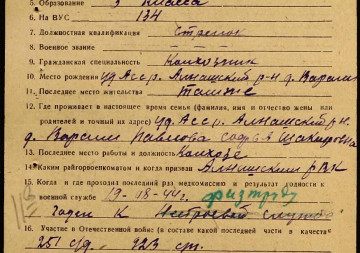 5. Образование 3 класса
6. На ВУС 134
7. Должностная квалификация Стрелок
8. Военное звание —
9. Гражданская специальность Колхозник
10. Место рождения Уд.Асср. Алнашский р-н д. Варали
11. Последнее место жительства Там же
12. Где проживает в настоящее время семья (фамилия, имя и отчество жены или
родителей и точный их адрес) Уд.Асср. Алнашский р.н.
д. Варали Павлова
13. Последнее место работы и должность Колхозе
14. Каким райгорвоенкоматом и когда призван Алнашским РВК
15. Когда и где проходил последний раз медкомиссию и результат годности к
военной службе 19-18-44г.
Годен к Нестроевой службе
16. Участие в Отечественной войне (в составе какой последней части и в качестве
251 с/д. 923 сп.